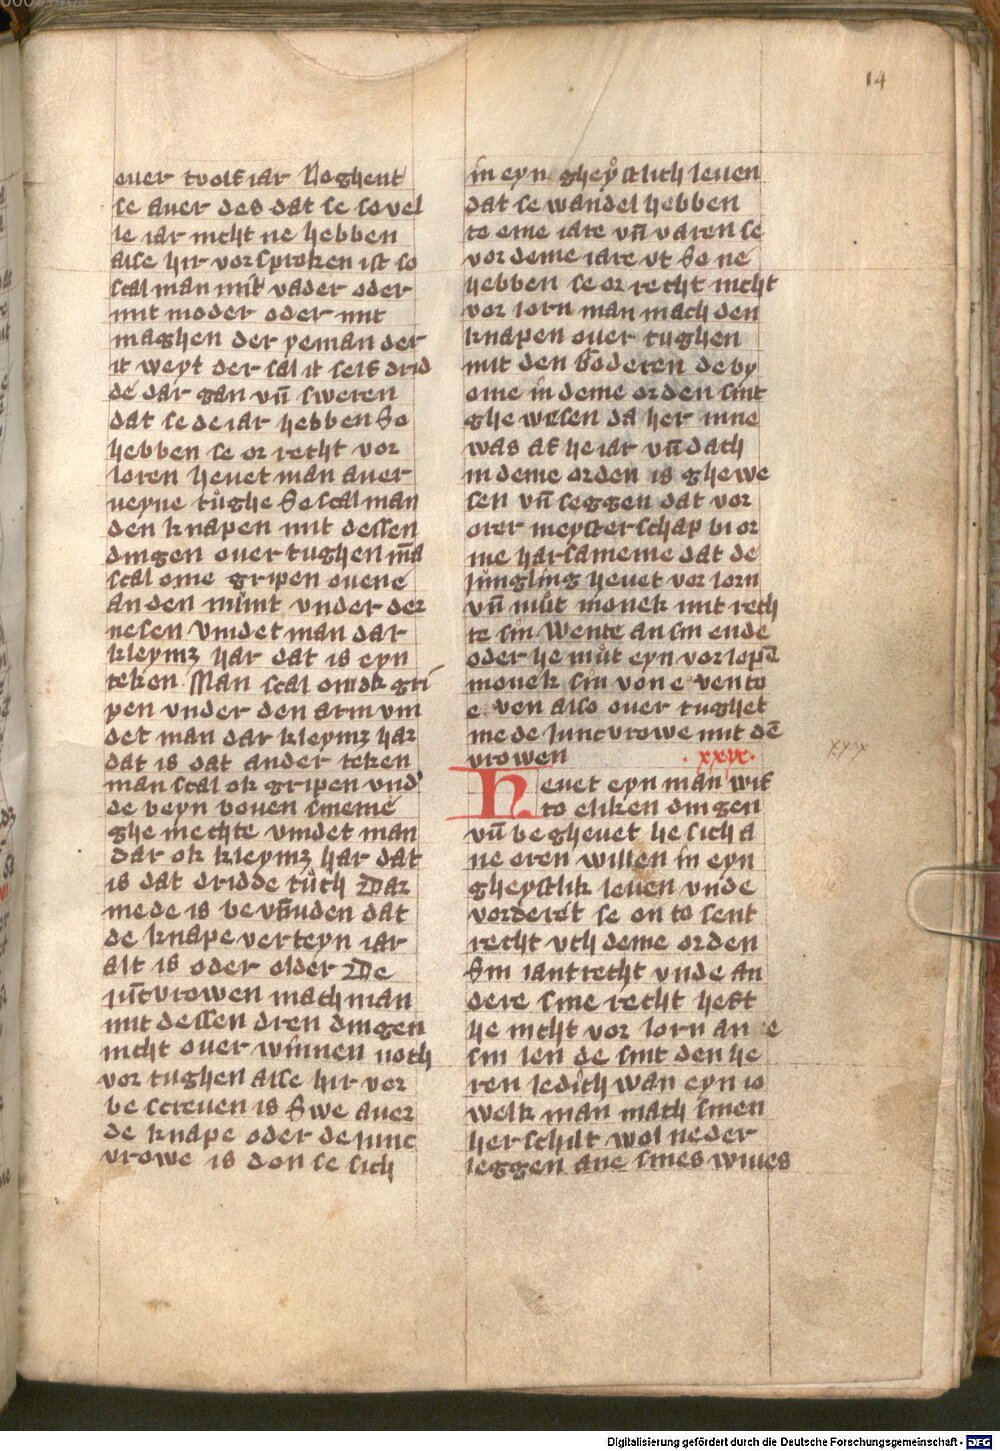 14
ouer twolf iar Loghent
se auer des dat se so vel
le iar nicht ne hebben
alse hir vor sproken ist so
scal man mit vader oder
mit moder oder mit
maghen der yeman der
it weyt der sal it self drid
de dar gan vn̄ sweren
dat se de iar hebben So
hebben se or recht vor
loren heuet man auer
neyne tůghe So scal man
den knapen mit dessen
dingen ouer tughen mā
scal ome gripen ouene
an den munt vnder der
nesen Vindet man dar
kleynʒ har dat is eyn
teken Man scal om ok gri
pen vnder den arm vin
det man dar kleynʒ har
dat is dat ander teken
man scal ok gripen vnd
de beyn bouen sineme
ghe mechte vindet man
dar ok kleynʒ har dat
is dat dridde tůch Dar
mede is be vn̄uden dat
de knape verteyn iar
alt is oder older De
iūcvrowen mach man
mit dessen dren dingen
nicht ouer winnen noch
vor tughen alse hir vor
be screuen is Swe auer
de knape oder de iunc
vrowe is don se sich
in eyn gheystlich leuen
dat se wandel hebben
to eme iare vn̄ varen se
vor deme iare vt So ne
hebben se or recht nicht
vor lorn man mach den
knapen ouer tughen
mit den broderen de by
ome in deme orden sint
ghe wesen da her inne
was af he iar vn̄ dach
in deme orden is ghe we
sen vn̄ seggen dat vor
orer meyster schap bi or
me harsameme dat de
iungling heuet vor lorn
vn̄ můt monek mit rech
te sin Wente an sin ende
oder he můt eyn vorlopē
monek sin von e ven to
e ven also ouer tughet
me de iuncvrowe mit dē
vrowen .xxix.
xxx
Heuet eyn man wif
to eliken dingen
vn̄ begheuet he sich a
ne eren willen in eyn
gheystlik leuen vnde
vorderet se on to sent
recht vth deme orden
Sin lantrecht vnde an
dere sine recht heft
he nicht vor lorn an e
sin len de sint den he
ren ledich wan eyn io
welk man mach sinen
her schilt wol neder
leggen ane sines wiues
Digitalisierung gefördert durch die Deutsche Forschungsgemeinschaft - DFG